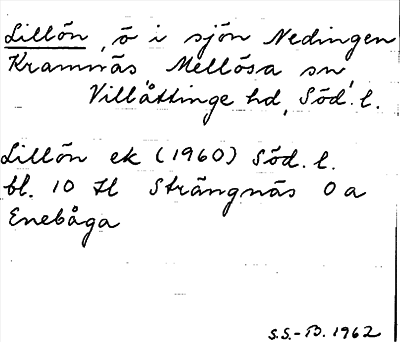 Lillön, ö i sjön Nedingen
Kramnäs, Mellösa sn,
Villåttinge hd, Söd. l.
Lillön ek (1960) Söd. l.
bl. 10 Hl Strängnäs 0 a
Enebåga
S.S.-B. 1962